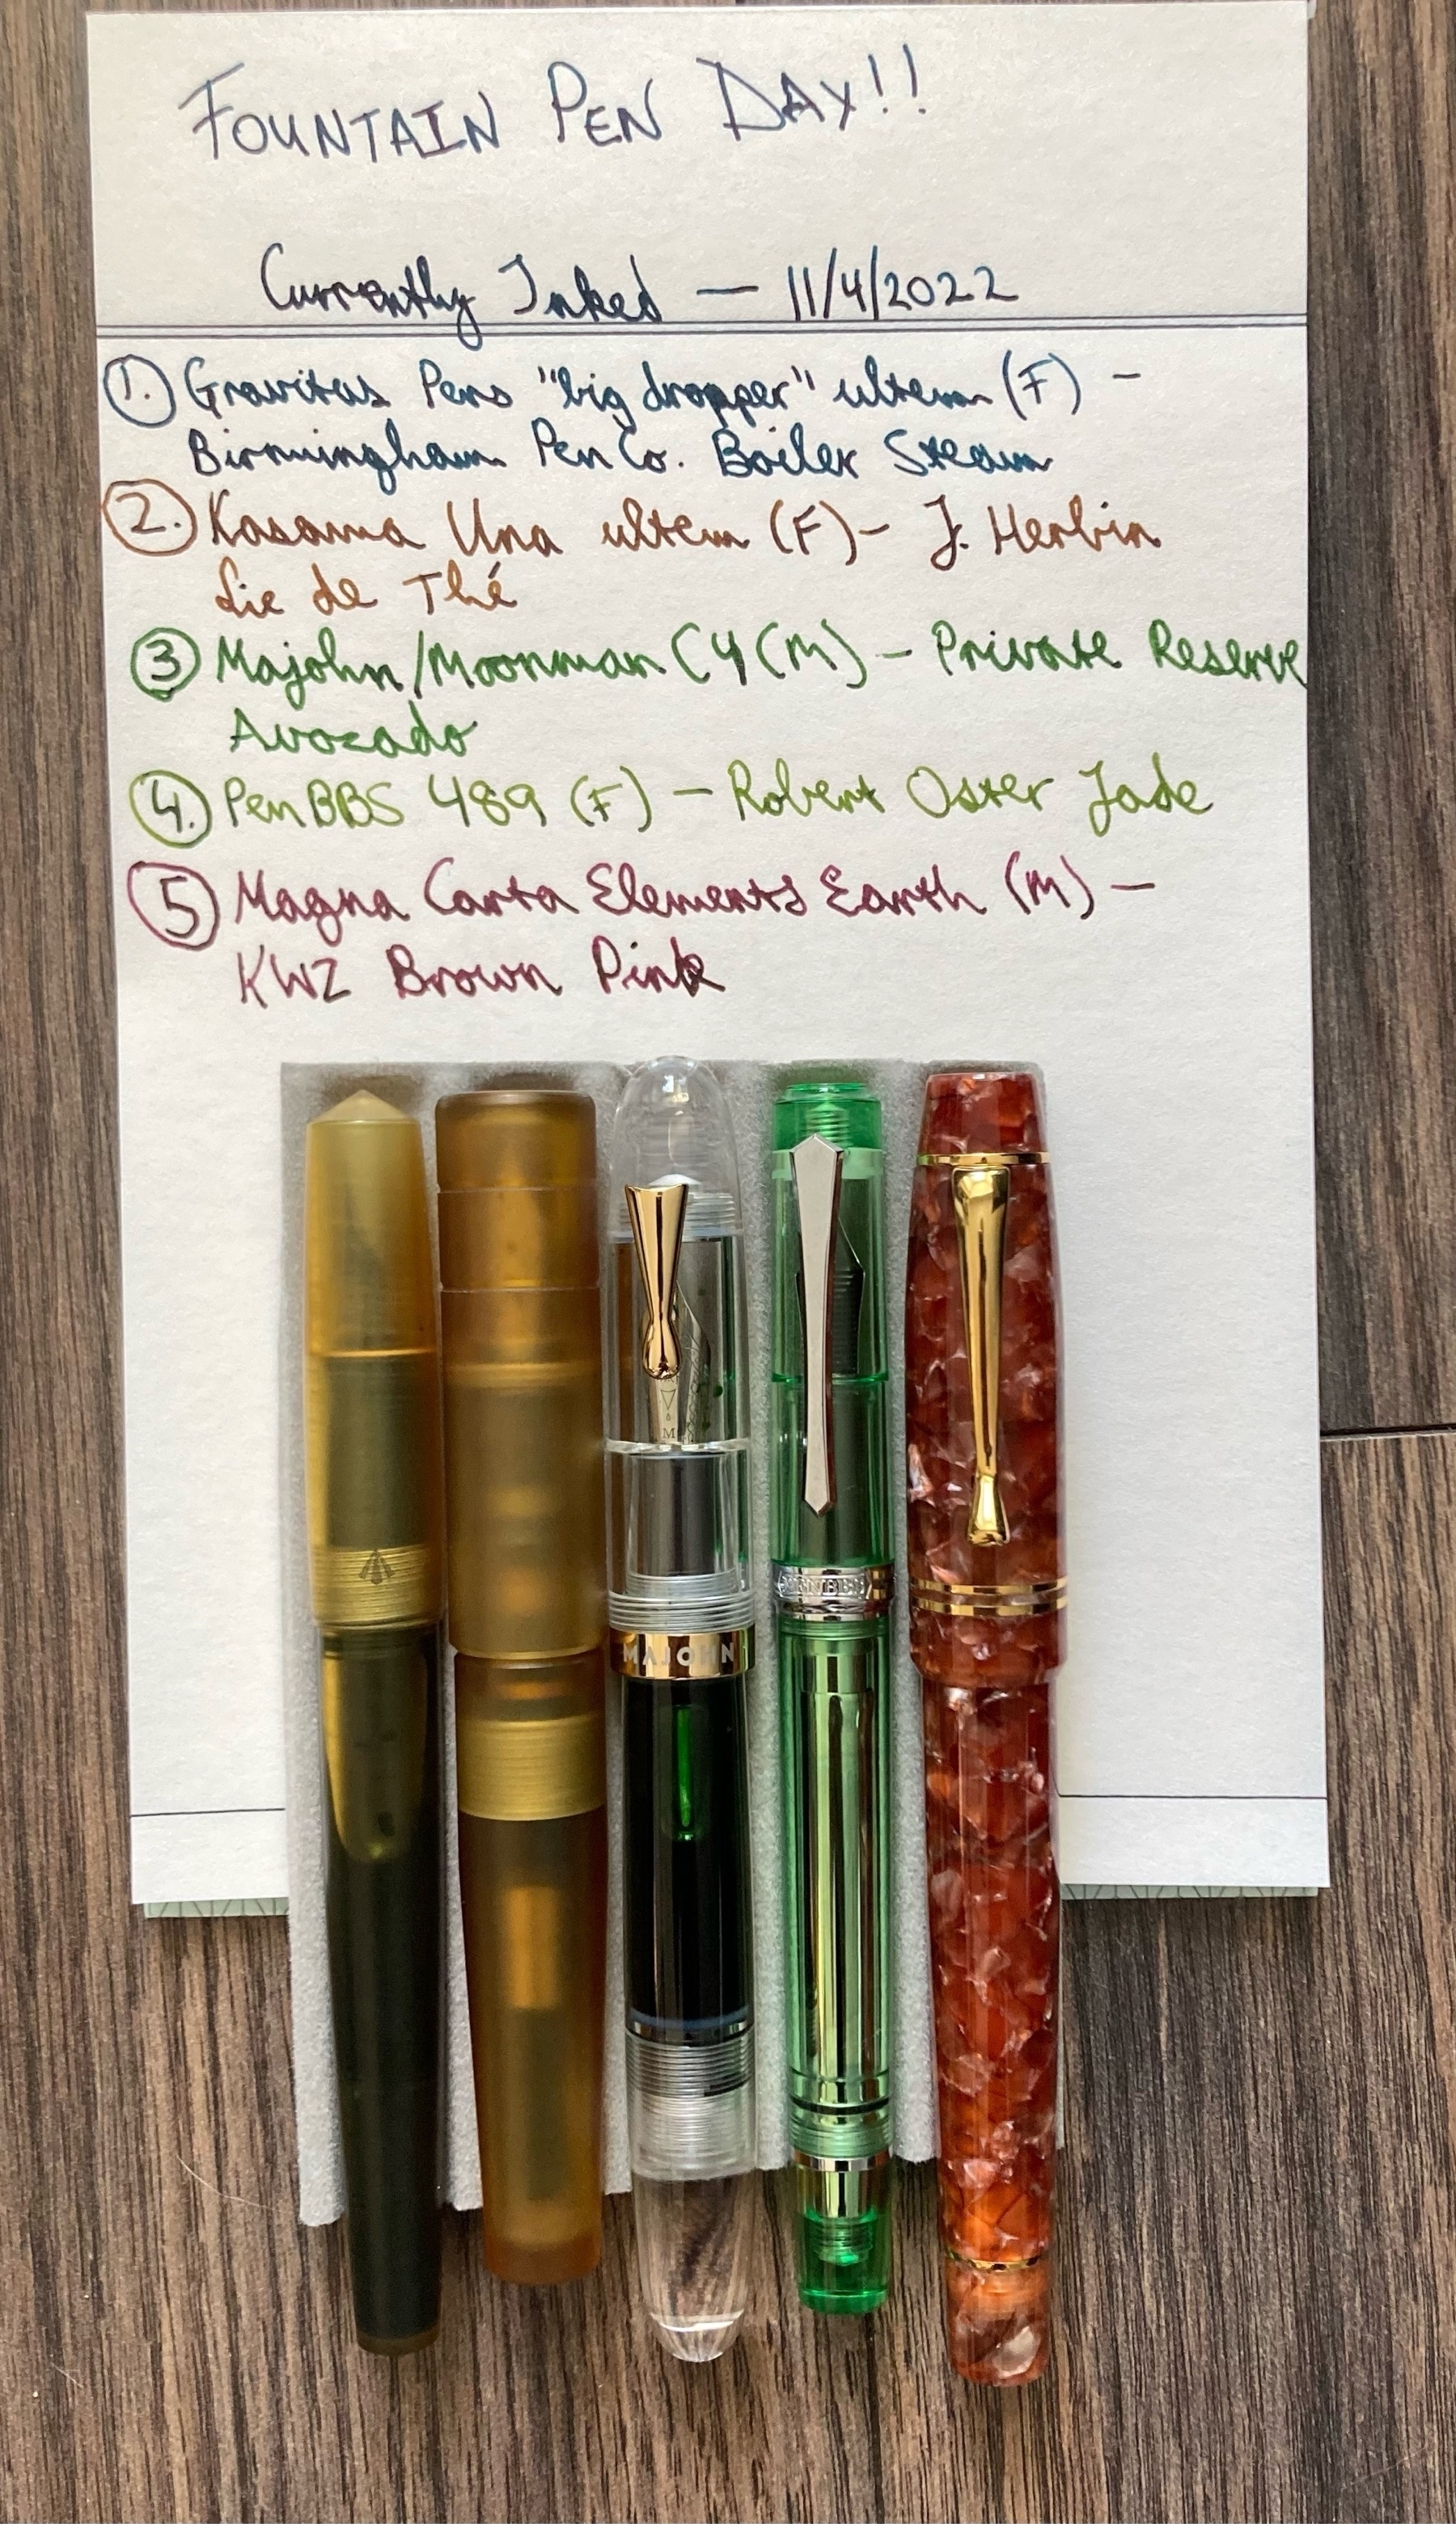 FOUNTAIN PEN DAY!!
Currently Inked — 11/4/2022
1. Gravitas Pens "big dropper" ultem (F) –
Birmingham Pen Co. Boiler Steam
2. Kasama Una ultem (F) – J. Herbin
Lie de Thé
3 Majohn/Moonman C4 (M) – Private Reserve
Avocado
4. PenBBS 489 (F) – Robert Oster Jade
5 Magna Carta Elements Earth (M) –
KWZ Brown Pink
M
MAJOHN
PENBBS